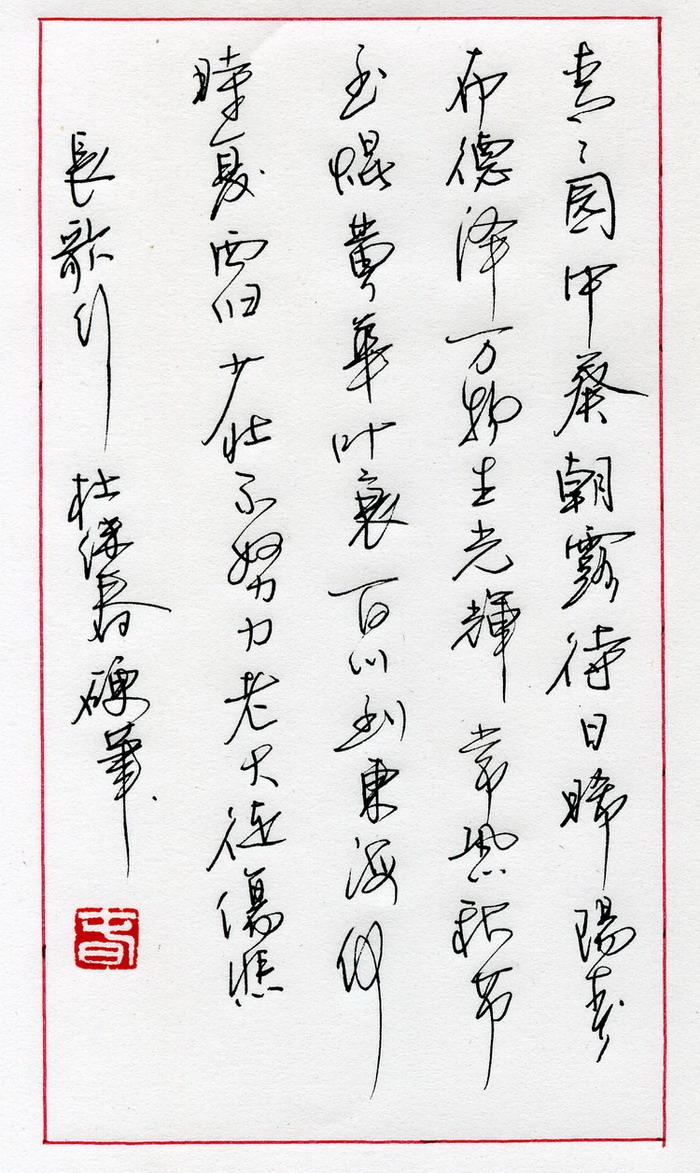 青〻園中葵朝露待日晞陽春
布德泽万物生光輝常恐秋节
至焜黄華叶衰百川到東海何
時复西归少壮不努力老大徒傷悲
長歌行 杜春硬筆